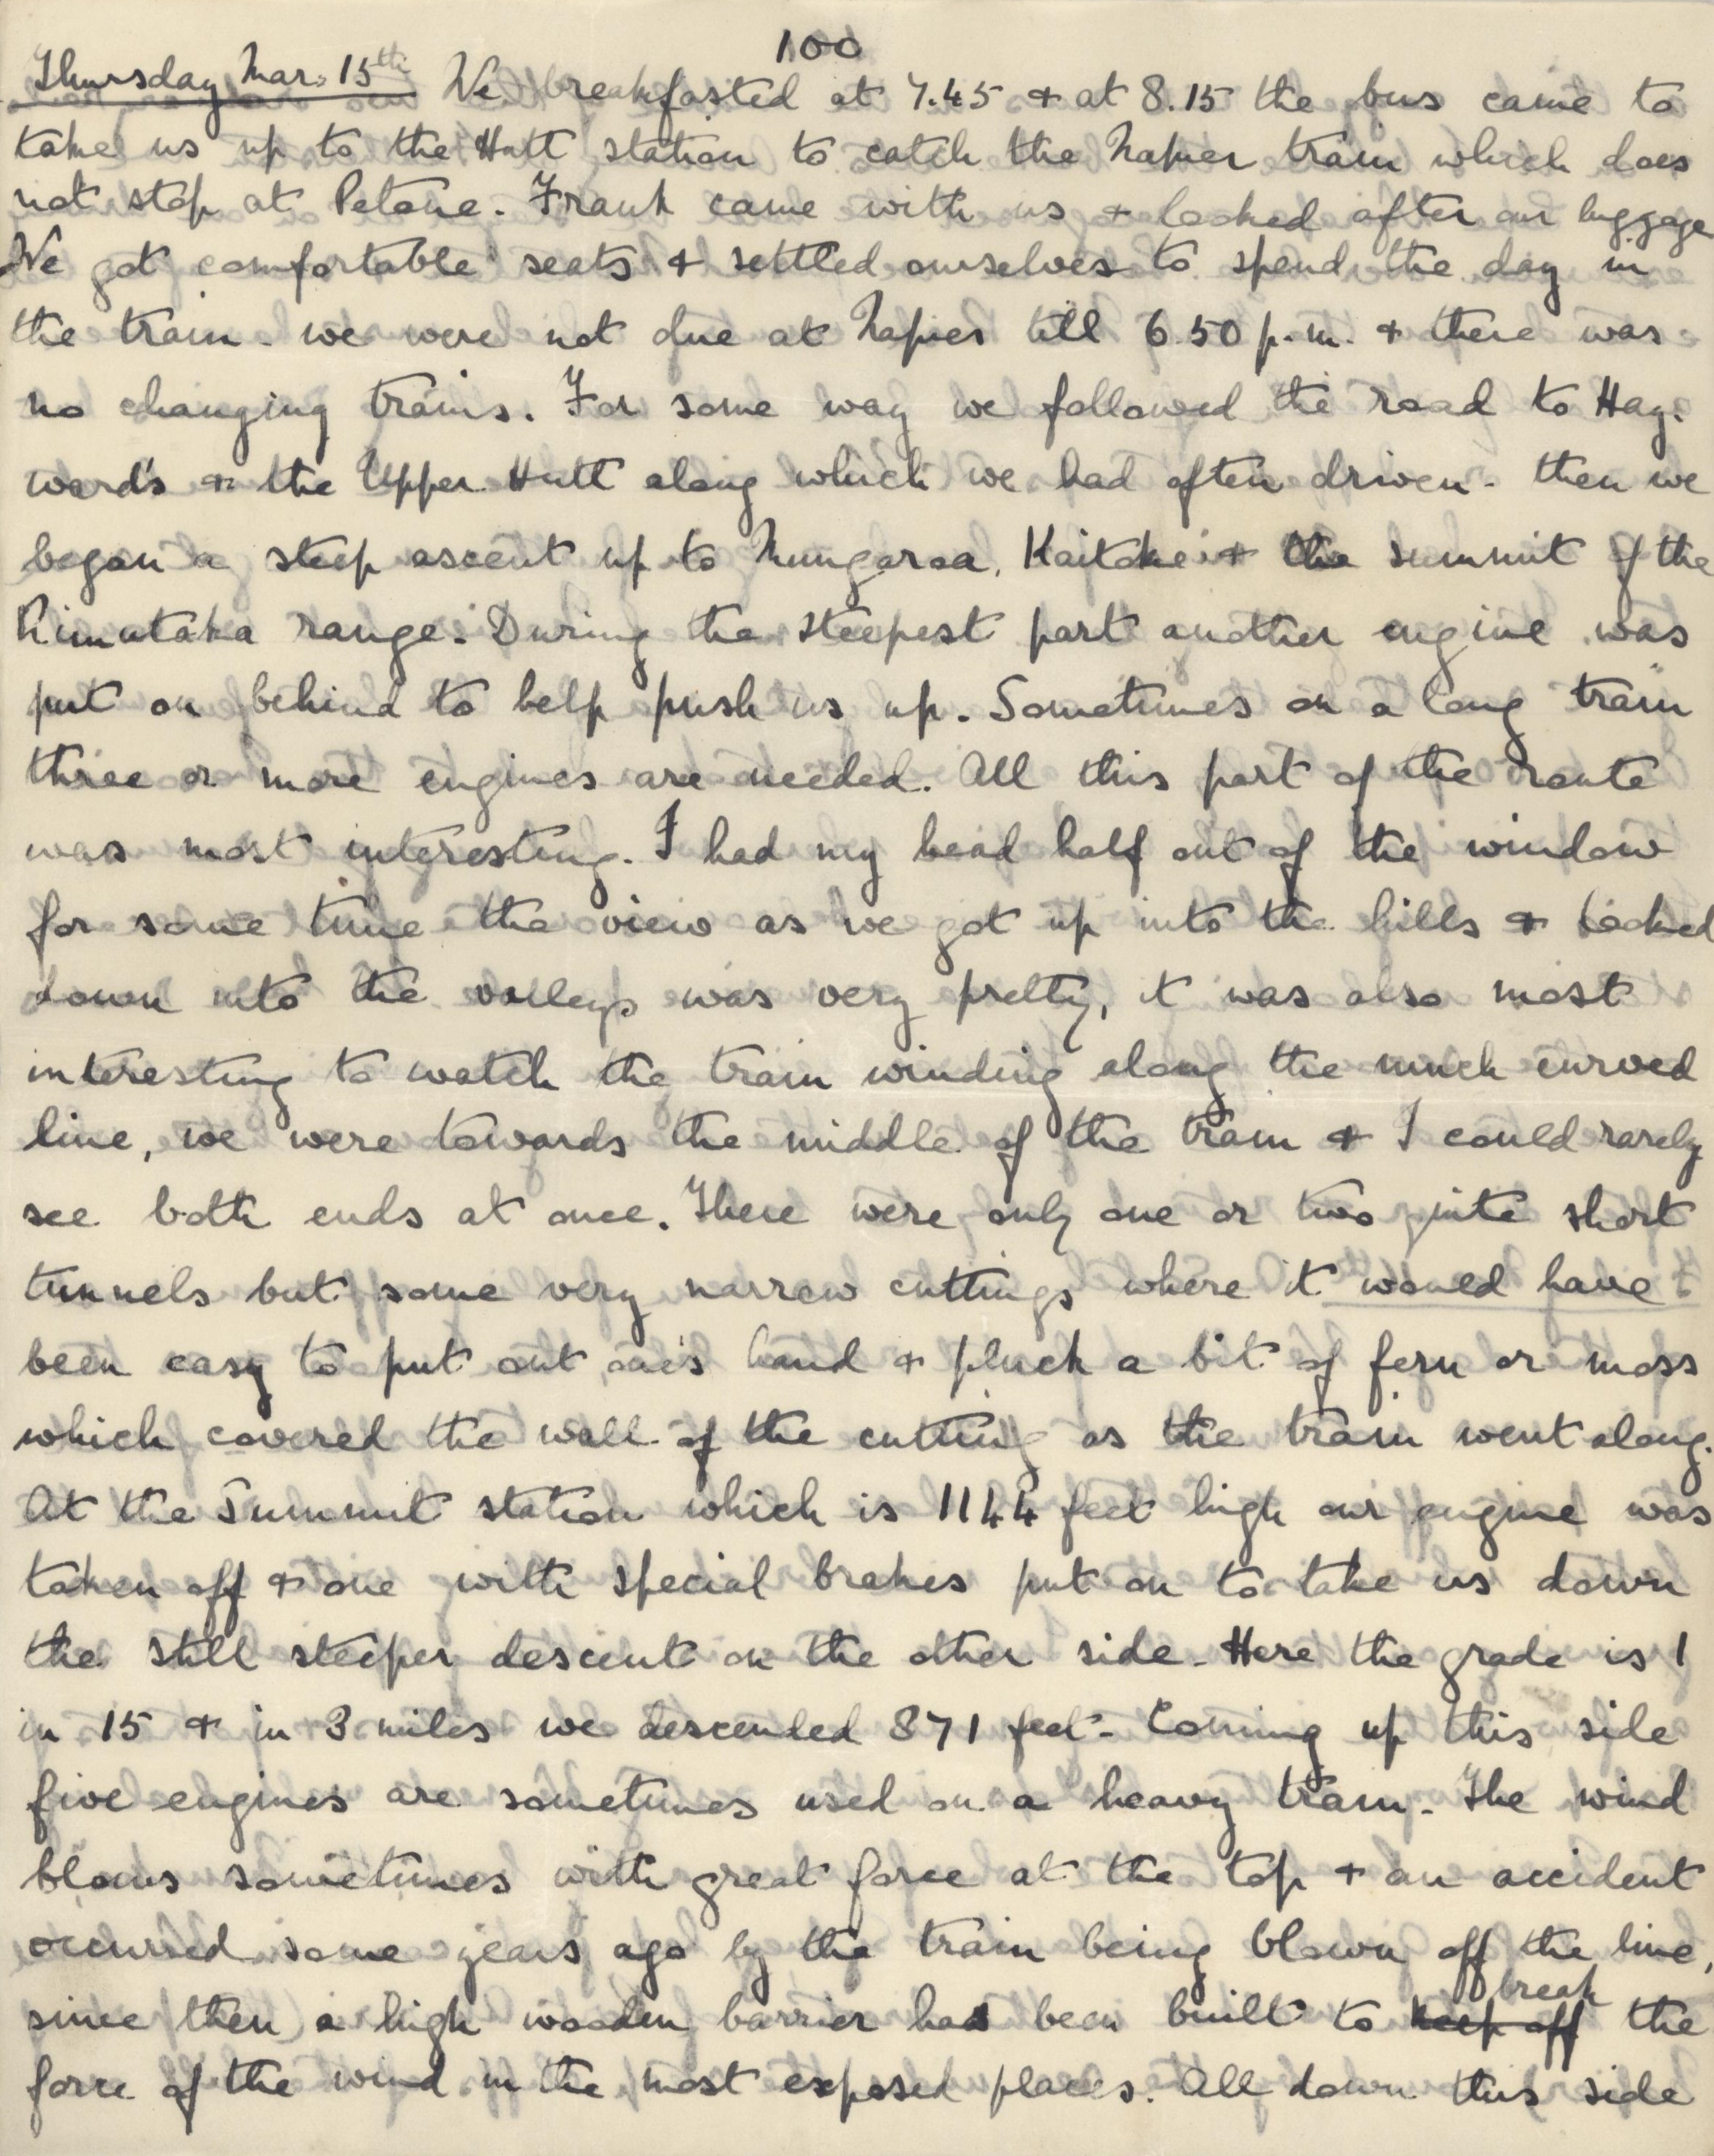 100
Thursday Mar. 15th We breakfasted at 7.45 & at 8.15 the bus came to
take us up to the Hutt station to catch the Napier train which does
not stop at Petone. Frank came with us & looked after our luggage
We got comfortable seats & settled ourselves to spend the day in
the train - we were not due at Napier till 6.50 p.m. & there was
no changing trains. For some way we followed the road to Hay-
ward's & the Upper Hutt along which we had often driven - then we
began a steep ascent up to Mungaroa, Kaitoke & the summit of the
Rimutaka range. During the steepest part another engine was
put on behind to help push us up. Sometimes on a long train
three or more engines are needed. All this part of the route
was most interesting. I had my head half out of the window
for some time the view as we got up into the hills & looked
down into the valleys was very pretty, it was also most
interesting to watch the train winding along the much curved
line, we were towards the middle of the train & I could rarely
see both ends at once. There were only one or two quite short
tunnels but some very narrow cuttings where it would have
been easy to put out one's hand & pluck a bit of fern or moss
which covered the wall of the cutting as the train went along.
At the Summit station which is 1144 feet high our engine was
taken off & one with special brakes put on to take us down
the still steeper descent on the other side - Here the grade is 1
in 15 & in 3 miles we descended 871 feet - Coming up this side
five engines are sometimes used on a heavy train - The wind
blows sometimes with great force at the top & an accident
occurred some years ago by the train being blown off the line,
since then a high wooden barrier had been built to keep off break the
force of the wind in the most exposed places. All down this side